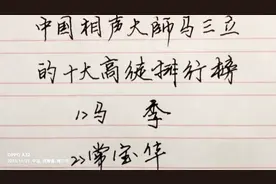 中国相声大师马三立
的十大高徒排行榜
1>马 季
2>常宝华